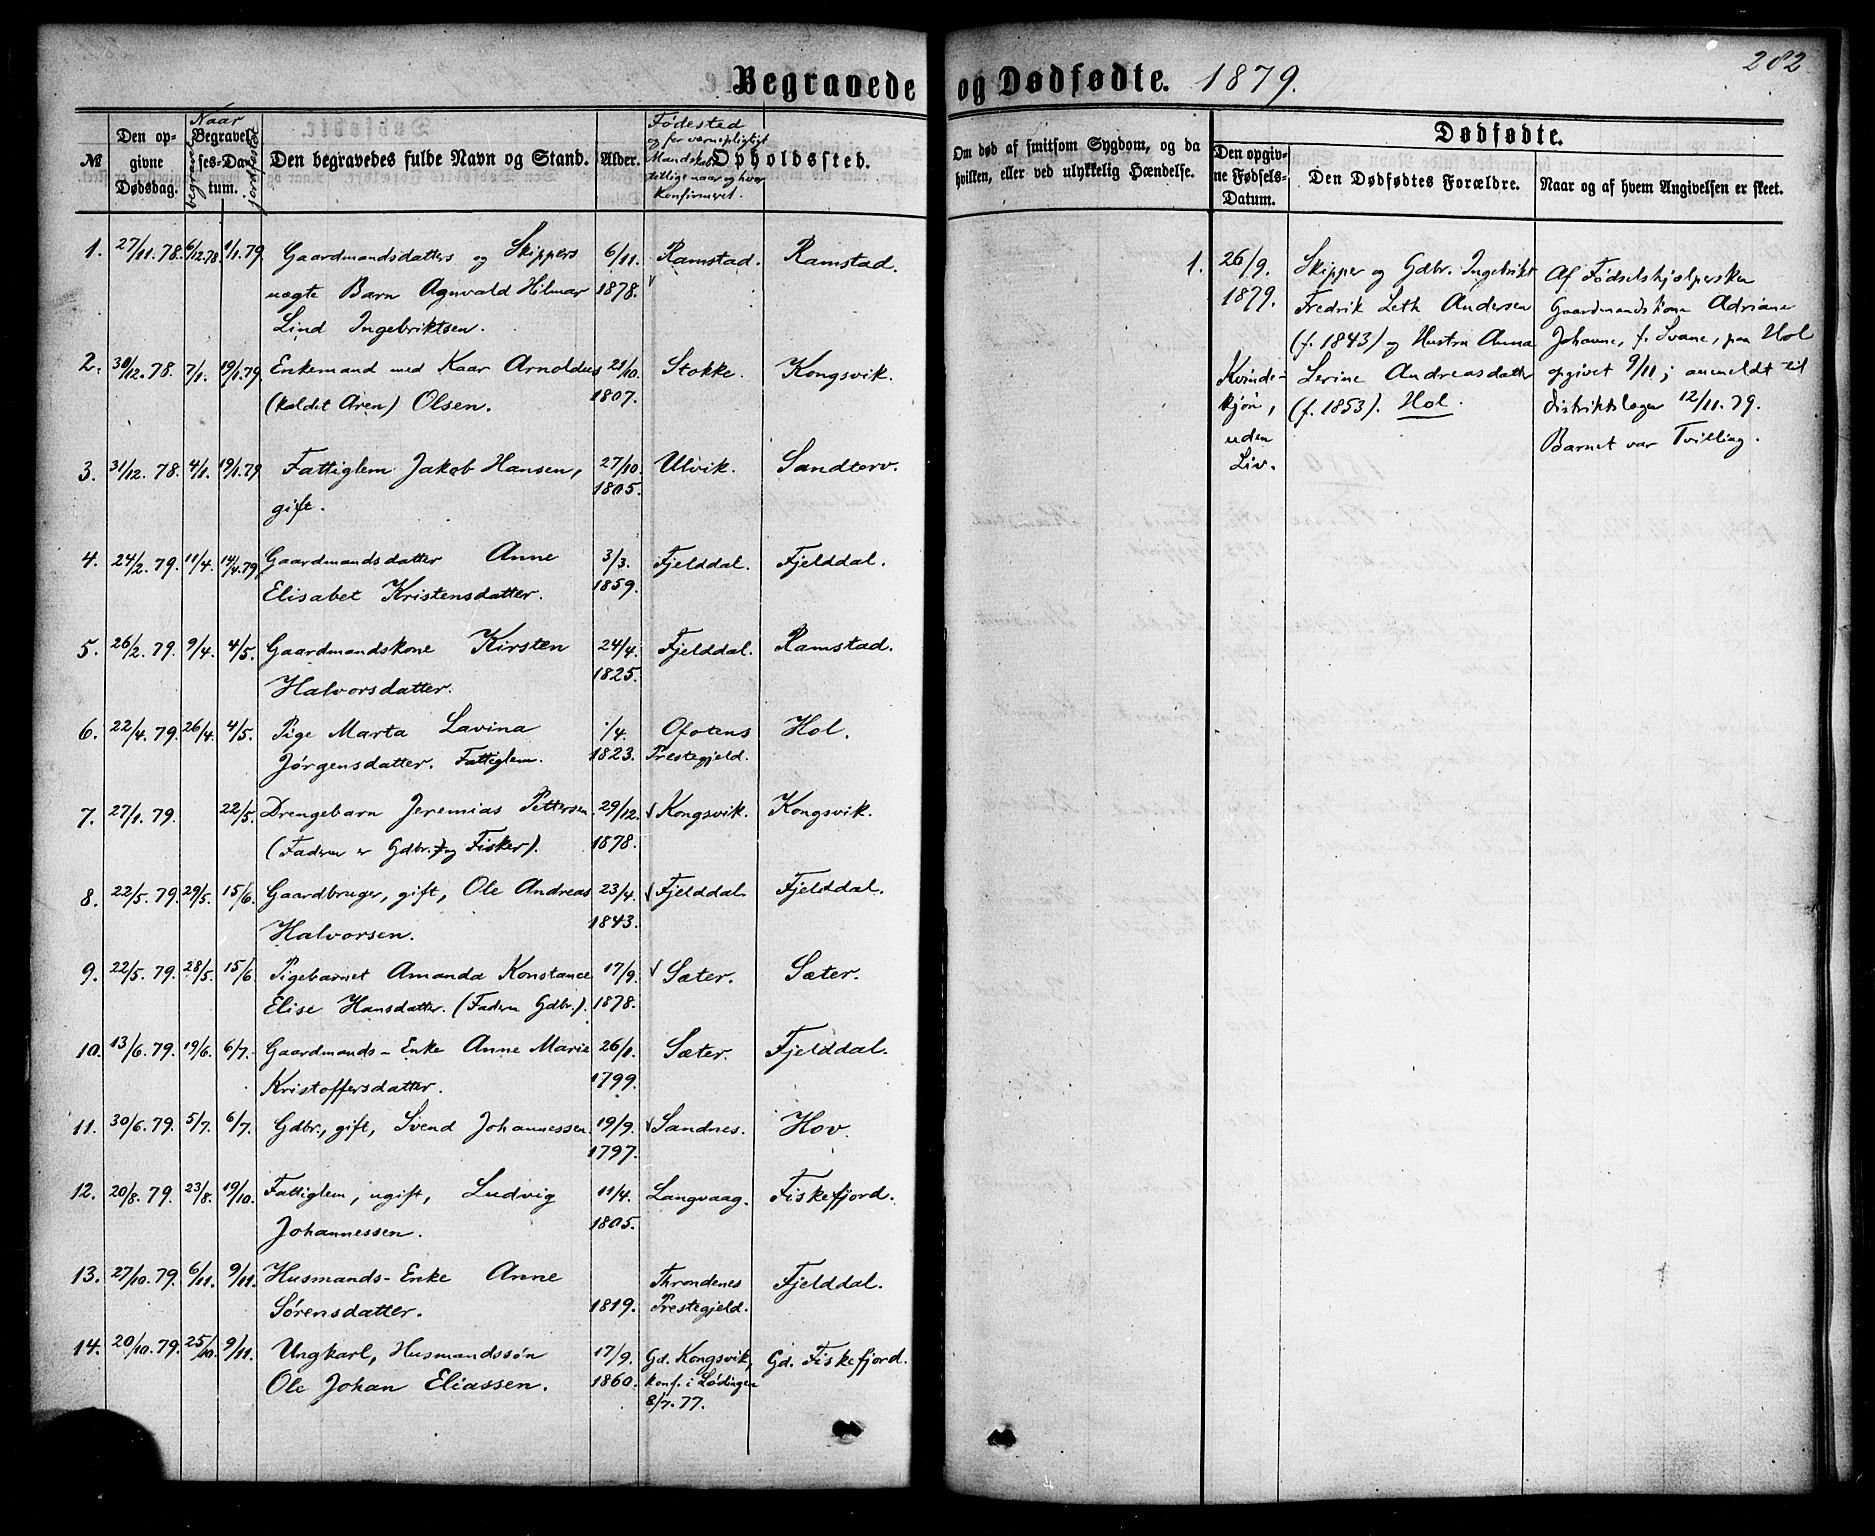 Begravede og Dødfødte. 1879.
282
№
Den opgivne Dødsdag.
Naar
Begravelses-Datum.
begravet
jordfæstet
Den begravedes fulde Navn og Stand.
Alder.
Fødested
og for værnepligtigt
Mandskab
tillige naar og hvor
Konfirmeret.
Opholdssted.
Om død af smitsom Sygdom, og da
hvilken, eller ved ulykkelig Hændelse.
Dødfødte.
Den opgivne Fødsels-Datum.
Den Dødfødtes Forældre.
Naar og af hvem Angivelsen er skeet.
1. 27/11.78. 6/12.78. 1/1.79. Gaardmandsdatters og Skippers 6/11. Ramstad. Ramstad.
uægte Barn Agnvald Hilmar 1878.
Lind Ingebriktsen.
2. 30/12.78. 7/1. 19/1.79. Enkemand med Kaar Arnoldus 21/10. Stokke. Kongsvik.
(kaldet Aren) Olsen. 1807.
3. 31/12.78. 4/1. 19/1.79 Fattiglem Jakob Hansen, 27/10. Ulvik. Sandterv.
gift. 1805.
4. 24/2.79. 11/4. 14/4.79 Gaardmandsdatter Anne 3/3. Fjelddal. Fjelddal.
Elisabet Kristensdatter. 1859.
5. 26/2.79. 9/4. 4/5. Gaardmandskone Kirsten 24/4. Fjelddal. Ramstad.
Halvorsdatter. 1825.
6. 22/4.79. 26/4. 4/5. Pige Marta Lavina ·/4. Ofotens Hol.
Jørgensdatter. Fattiglem. 1823. Prestegjeld.
7. 27/1.79. 22/5. Drengebarn Jeremias Pettersen 29/12. Kongsvik. Kongsvik.
(Faderen er Gdbr. og Fisker). 1878.
8. 22/5.79. 29/5. 15/6. Gaardbruger, gift, Ole Andreas 23/4. Fjelddal. Fjelddal.
Halvorsen. 1843.
9. 22/5.79. 28/5. 15/6 Pigebarnet Amanda Konstance 17/9. Sæter. Sæter.
Elise Hansdatter. (Faderen Gdbr.). 1878.
10. 13/6.79. 19/6. 6/7. Gaardmands-Enke Anne Marie 26/1. Sæter. Fjelddal.
Kristoffersdatter. 1799.
11. 30/6.79. 5/7. 6/7. Gdbr., gift, Svend Johannessen. 19/9. Sandnes. Hov.
1797.
12. 20/8.79. 23/8. 19/10. Fattiglem, ugift, Ludvig 11/4. Langvaag. Fiskefjord.
Johannessen. 1805.
13. 27/10.79. 6/11. 9/11. Husmands-Enke Anne Throndenes Fjelddal.
Sørensdatter. 1819. Prestegjeld.
14. 20/10.79. 25/10. 9/11. Ungkarl, Husmandssøn 17/9. Gd. Kongsvik, Gd. Fiskefjord.
Ole Johan Eliassen. 1860. konf. i Lødingen
8/7.77.
1. 26/9. Skipper og Gdbr. Ingebrikt Af Fødselshjælpersken
1879. Fredrik Leth Andersen Gaardmandskone Adriane
(f. 1843) og Hustru Anna Johanne, f. Svane, paa Hol
Kvinde- Lerine Andreasdatter opgivet 9/11; anmeldt til
kjøn, (f. 1853). Hol. Distriktslægen 12/11.79.
uden Barnet var Tvilling.
Liv.